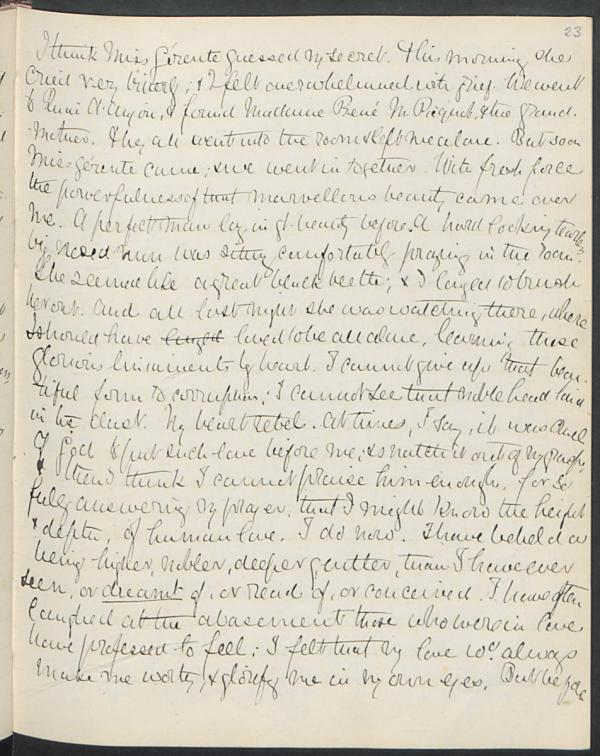 23
I think Miss Gérente guessed my secret. This morning she
cried very bitterly; & I felt overwhelmed with grief. We went
to Quai d'Anjou, & found Madame René M. Picquet & the grand-
mother. They all went into the room & left me alone. But soon
Miss Gérente came; & we went in together. With fresh force
the powerfulness of that marvellous beauty came over
me. A perfect man lay in gt. beauty before. A hard looking
big nosed nun was sitting comfortably praying in the room.
She seemed like a great black beetle; & I longed to brush
her out. And all last night she was watching there, where
I should have longed loved to be all alone, learning those
glorious lineaments by heart. I cannot give up that beau-
tiful form to corruption; I cannot see that noble head laid
in the dust. My heart rebels. At times, I say, it was cruel
of God to put such love before me, & snatch it out of my grasp;
& then I think I cannot praise him enough, for so
fully answering my prayer, that I might know the height
& depth, of human love. I do now. I have beheld a
being higher, nobler, deeper, gentler, than I have ever
seen, or dreamt of, or read of, or conceived. I have often
laughed at the abasement those who were in love
have professed to feel; I felt that my love wd. always
make me worthy, & glorify me in my own eyes. But before